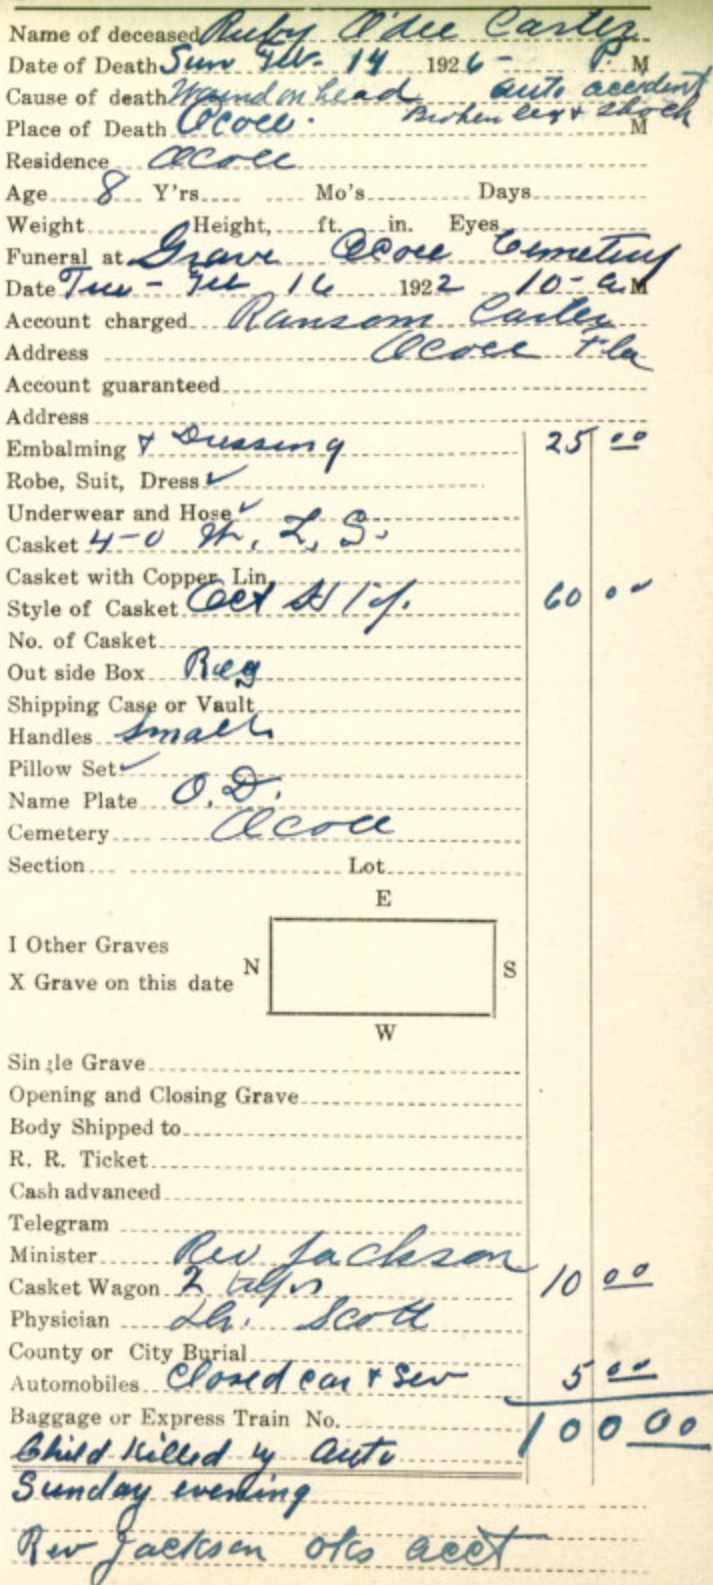 Name of deceased Ruby O'dee Carter
Date of Death Sun Feb. 14 1926- P. M
Cause of death Wound on head auto accident
Broken leg & shock
Place of Death Ocoee. M
Residence Ocoee
Age 8 Y'rs Mo's Days
Weight Height, ft. in. Eyes
Funeral at Grave Ocoee Cemetery
Date Tue - Feb 16 1922 10- a M
Account charged Ransom Carter
Address Ocoee Fla
Account guaranteed
Address
Embalming & Dressing 25 00
Robe, Suit, Dress ✓
Underwear and Hose ✓
Casket 4-0 W, L, S.
Casket with Copper Lin
Style of Casket Oct 60 00
No. of Casket
Out side Box Reg
Shipping Case or Vault
Handles Small
Pillow Set ✓
Name Plate O. D.
Cemetery Ocoee
Section Lot
E
I Other Graves
N S
X Grave on this date
W
Single Grave
Opening and Closing Grave
Body Shipped to
R. R. Ticket
Cash advanced
Telegram
Minister Rev Jackson
Casket Wagon 2 10 00
Physician Dr. Scott
County or City Burial
Automobiles Closed car & Serv 5 00
Baggage or Express Train No. 100 00
Child Killed by Auto
Sunday evening
Rev Jackson oks acct